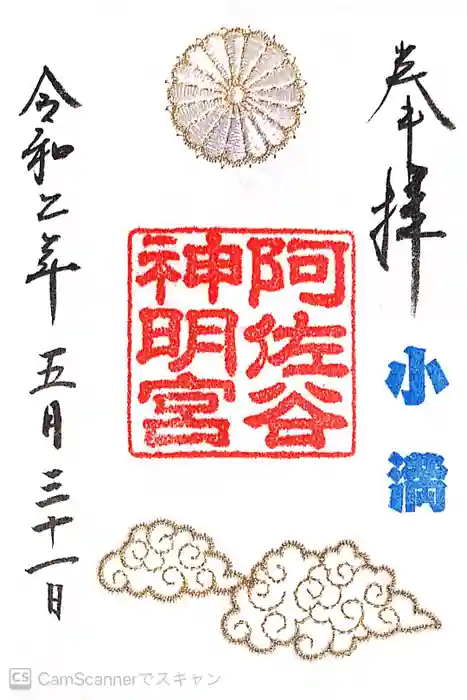 奉拝
小満
阿佐谷
神明宮
令和二年 五月三十一日
CS CamScannerでスキャン